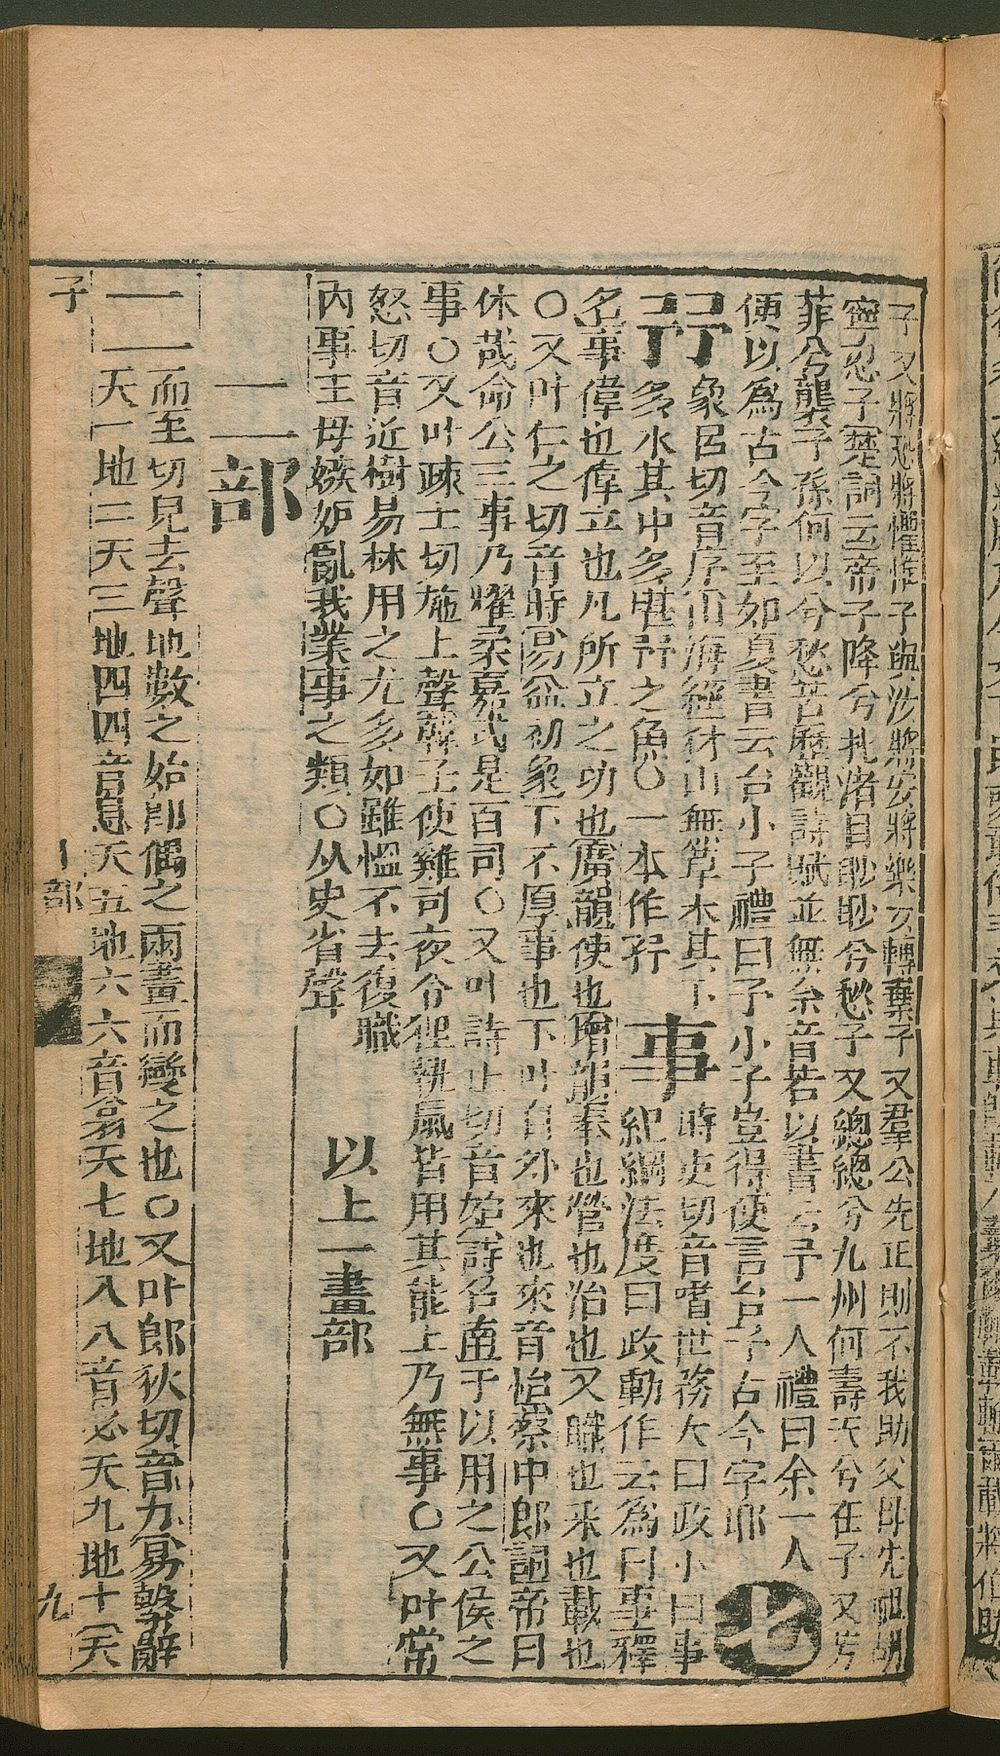 子又將恐將懼惟予與汝將安將樂女轉棄予又羣公先正則不我助父母先祖胡
寧忍予楚詞云帝子降兮北渚目眇眇兮愁予又總總兮九州何壽夭兮在予又芳
菲菲兮襲予孫何以兮愁苦歷觀詩賦並無余音若以書云予一人禮曰余一人
便以爲古今字至如夏書云台小子禮曰予小子豈得便言台予古今字耶
㐨象呂切音序山海經犲山無草木其下
多水其中多堪㐨之魚〇一本作㐨
事時吏切音嗜世務大曰政小曰事
紀綱法度曰政動作云爲曰事釋
名事偉也偉立也凡所立之功也廣韻使也增韻奉也營也治也又職也采也載也
〇又叶仁之切音時易益初象下不厚事也下叶自外來也來音怡蔡中郎詞帝曰
休哉命公三事乃耀柔嘉式是百司〇又叶詩止切音始詩召南于以用之公侯之
事〇又叶疎士切施上聲韓子使雞司夜令狸執鼠皆用其能上乃無事〇又叶常
怒切音近樹易林用之尤多如雖慍不去復職
內事王母嫉妒亂我業事之類〇从史省聲
以上一畫部
二部
二而至切見去聲地數之始卽偶之兩畫而變之也〇又叶郎狄切音力易繫辭
天一地二天三地四四音息天五地六六音翁天七地八八音必天九地十(天
子
亅部
九